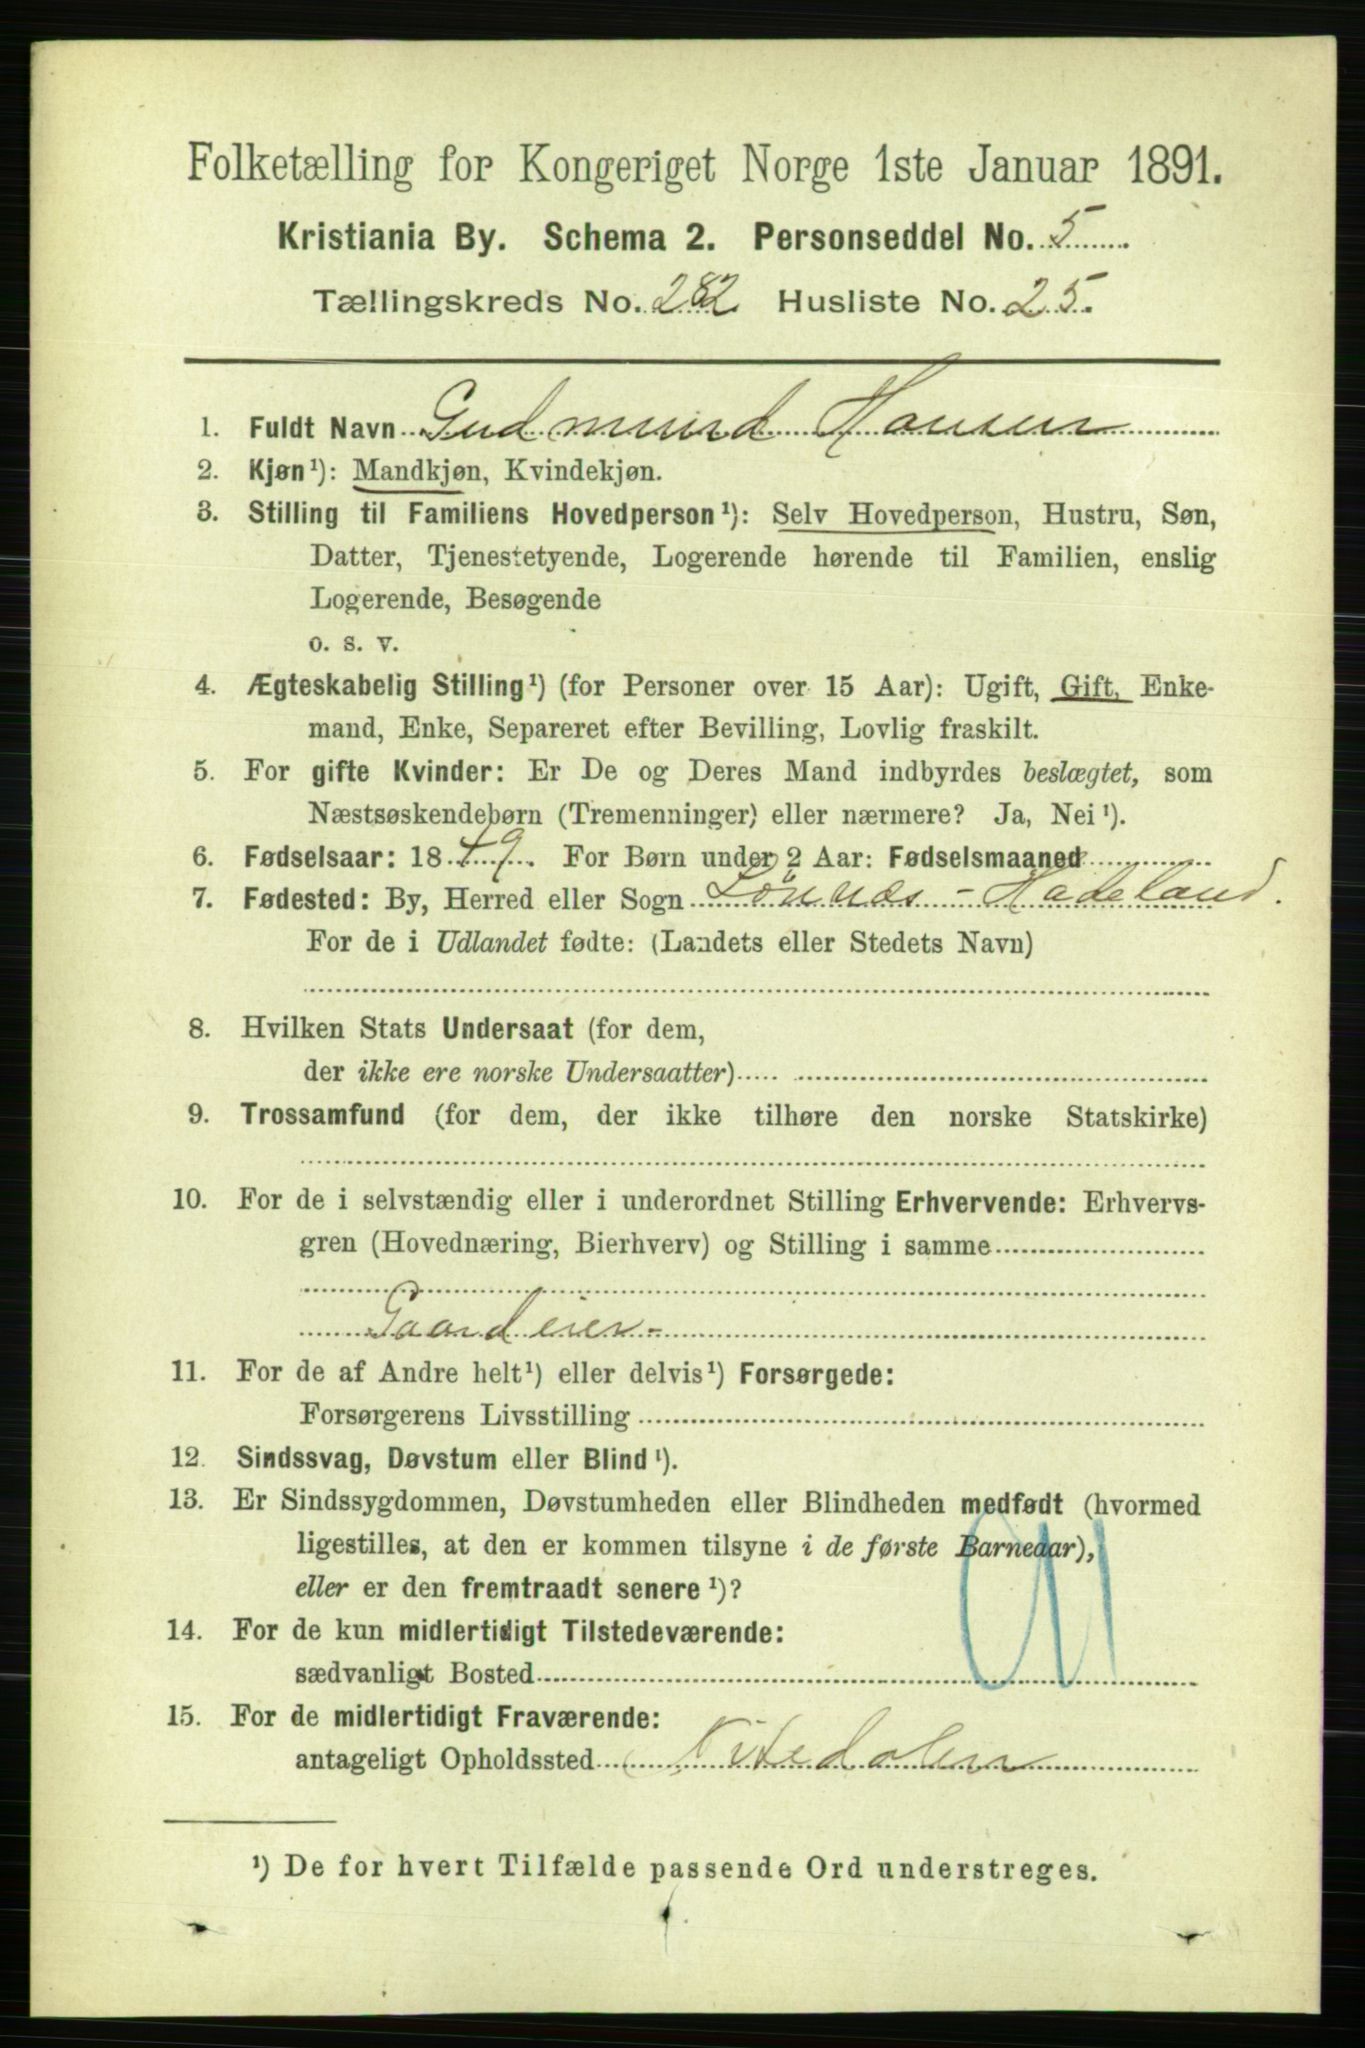 Folketælling for Kongeriget Norge 1ste Januar 1891.
Kristiania By. Schema 2. Personseddel No. 5
Tællingskreds No. 282 Husliste No. 25.
1. Fuldt Navn Gudmund Hansen
2. Kjøn¹): Mandkjøn, Kvindekjøn.
3. Stilling til Familiens Hovedperson¹): Selv Hovedperson, Hustru, Søn,
Datter, Tjenestetyende, Logerende hørende til Familien, enslig
Logerende, Besøgende
o. s. v.
4. Ægteskabelig Stilling¹) (for Personer over 15 Aar): Ugift, Gift, Enke-
mand, Enke, Separeret efter Bevilling, Lovlig fraskilt.
5. For gifte Kvinder: Er De og Deres Mand indbyrdes beslægtet, som
Næstsøskendebørn (Tremenninger) eller nærmere? Ja, Nei¹).
6. Fødselsaar: 1849. For Børn under 2 Aar: Fødselsmaaned
7. Fødested: By, Herred eller Sogn - Hadeland.
For de i Udlandet fødte: (Landets eller Stedets Navn)
8. Hvilken Stats Undersaat (for dem,
der ikke ere norske Undersaatter)
9. Trossamfund (for dem, der ikke tilhøre den norske Statskirke)
10. For de i selvstændig eller i underordnet Stilling Erhvervende: Erhvervs-
gren (Hovednæring, Bierhverv) og Stilling i samme
Gaardeier -
11. For de af Andre helt¹) eller delvis¹) Forsørgede:
Forsørgerens Livsstilling
12. Sindssvag, Døvstum eller Blind¹).
13. Er Sindssygdommen, Døvstumheden eller Blindheden medfødt (hvormed
ligestilles, at den er kommen tilsyne i de første Barneaar),
eller er den fremtraadt senere¹)?
14. For de kun midlertidigt Tilstedeværende:
sædvanligt Bosted
15. For de midlertidigt Fraværende:
antageligt Opholdssted Nitedalen
¹) De for hvert Tilfælde passende Ord understreges.